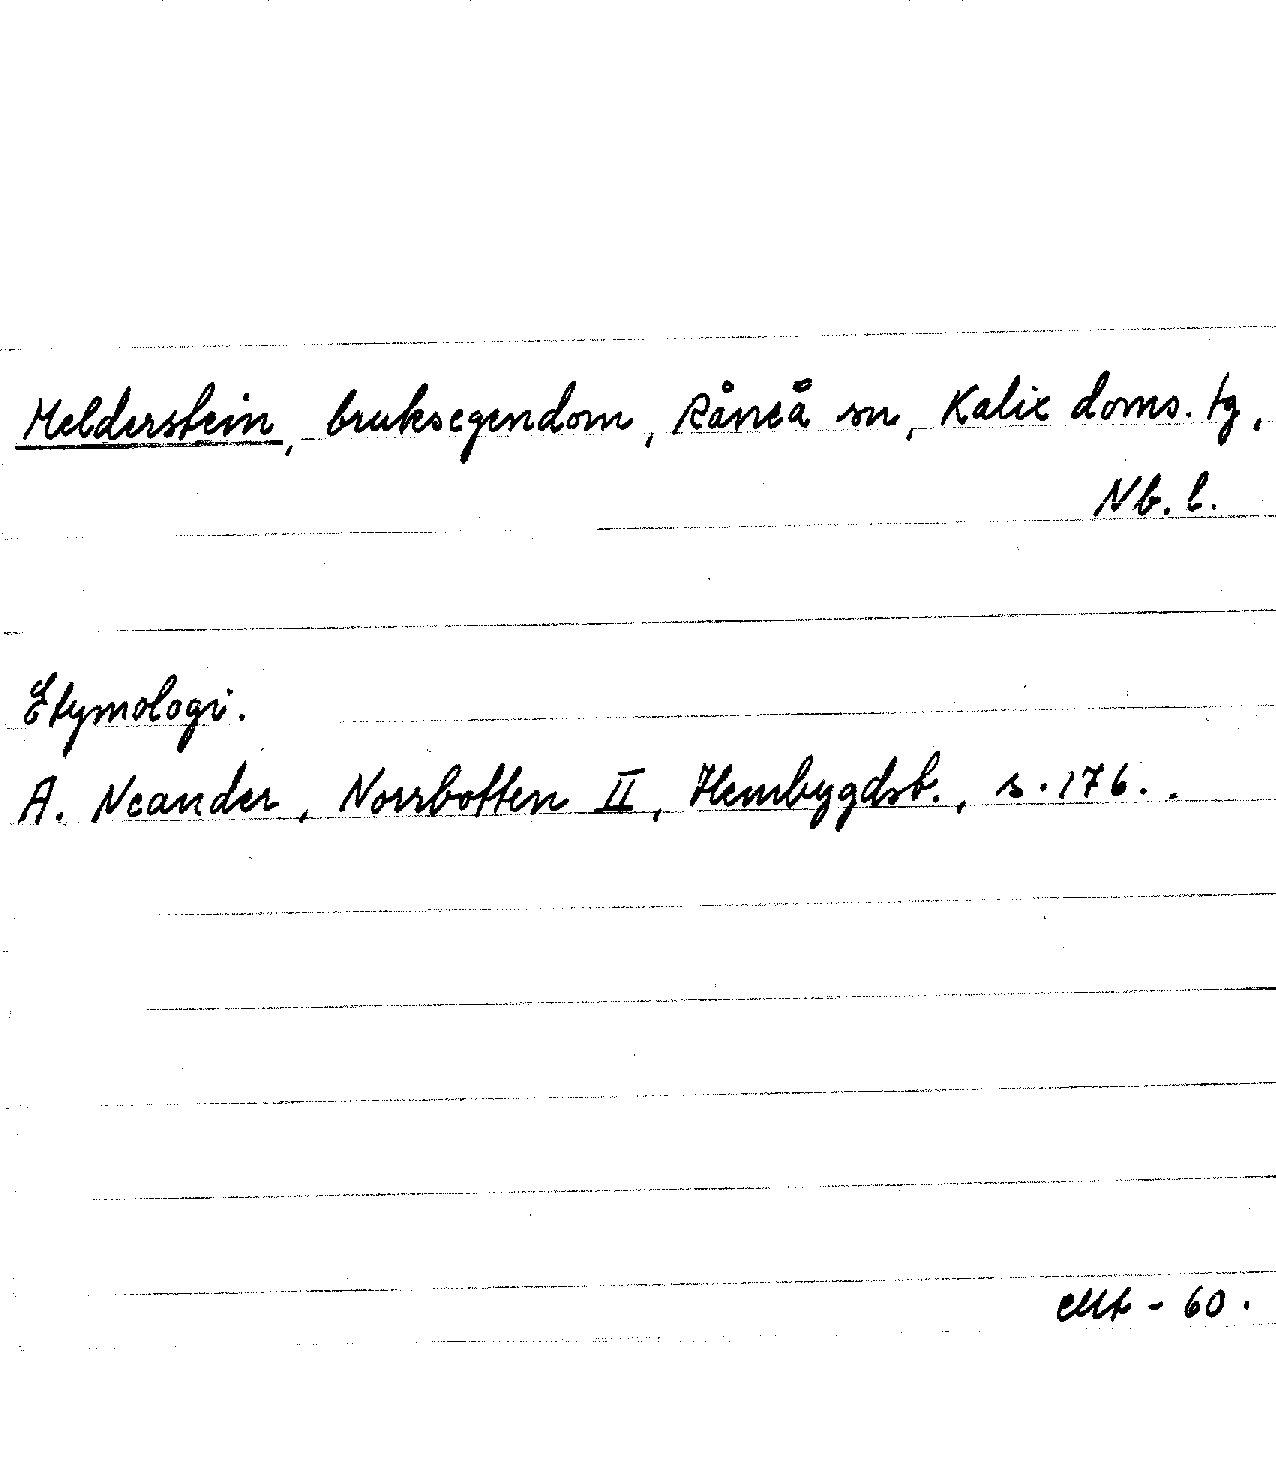 Melderstein, bruksegendom, Råneå sn, Kalix doms. tg,
Nb. l.
Etymologi.
A. Neander, Norrbotten II, Hembygdsb., s. 176. .
- 60.